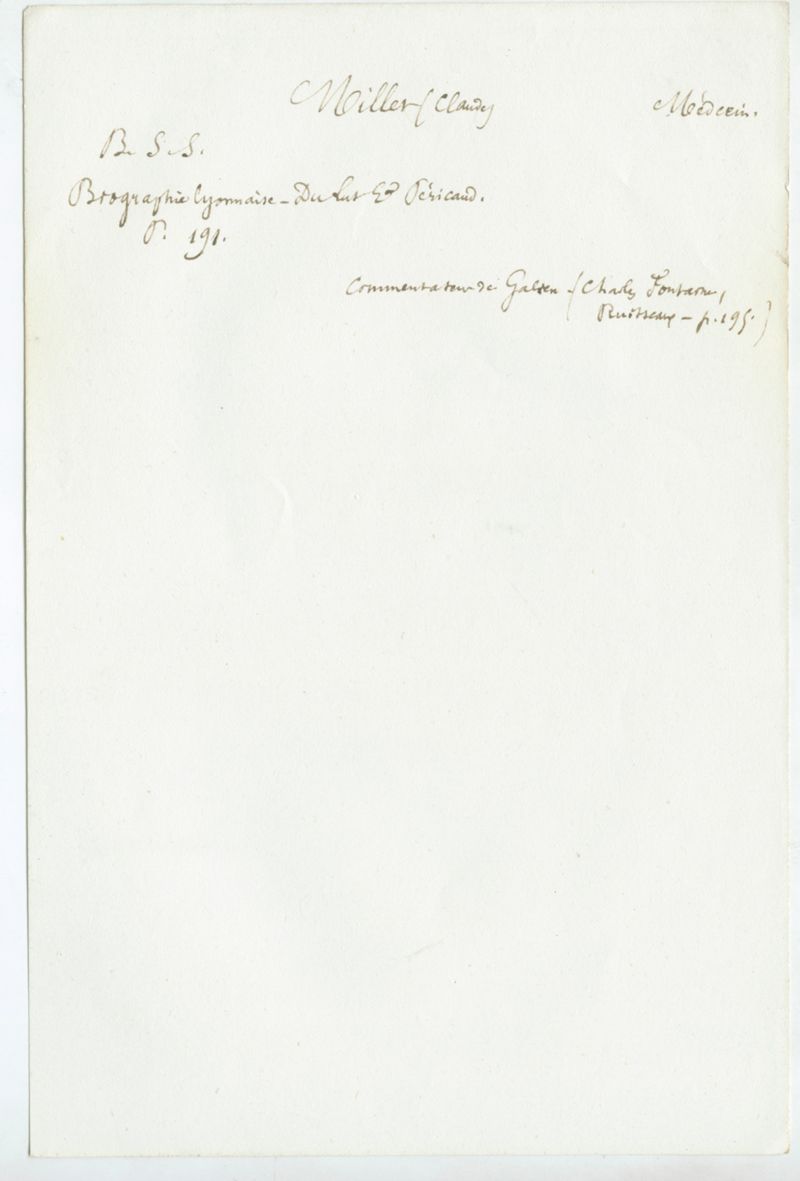 Millet (Claude) Médecin.
B. S. S.
Biographie lyonnaise – Du Lut & Péricaud.
P. 191.
Commentateur de Galien (Charles Fontaine,
Ruisseaux – p. 195.)